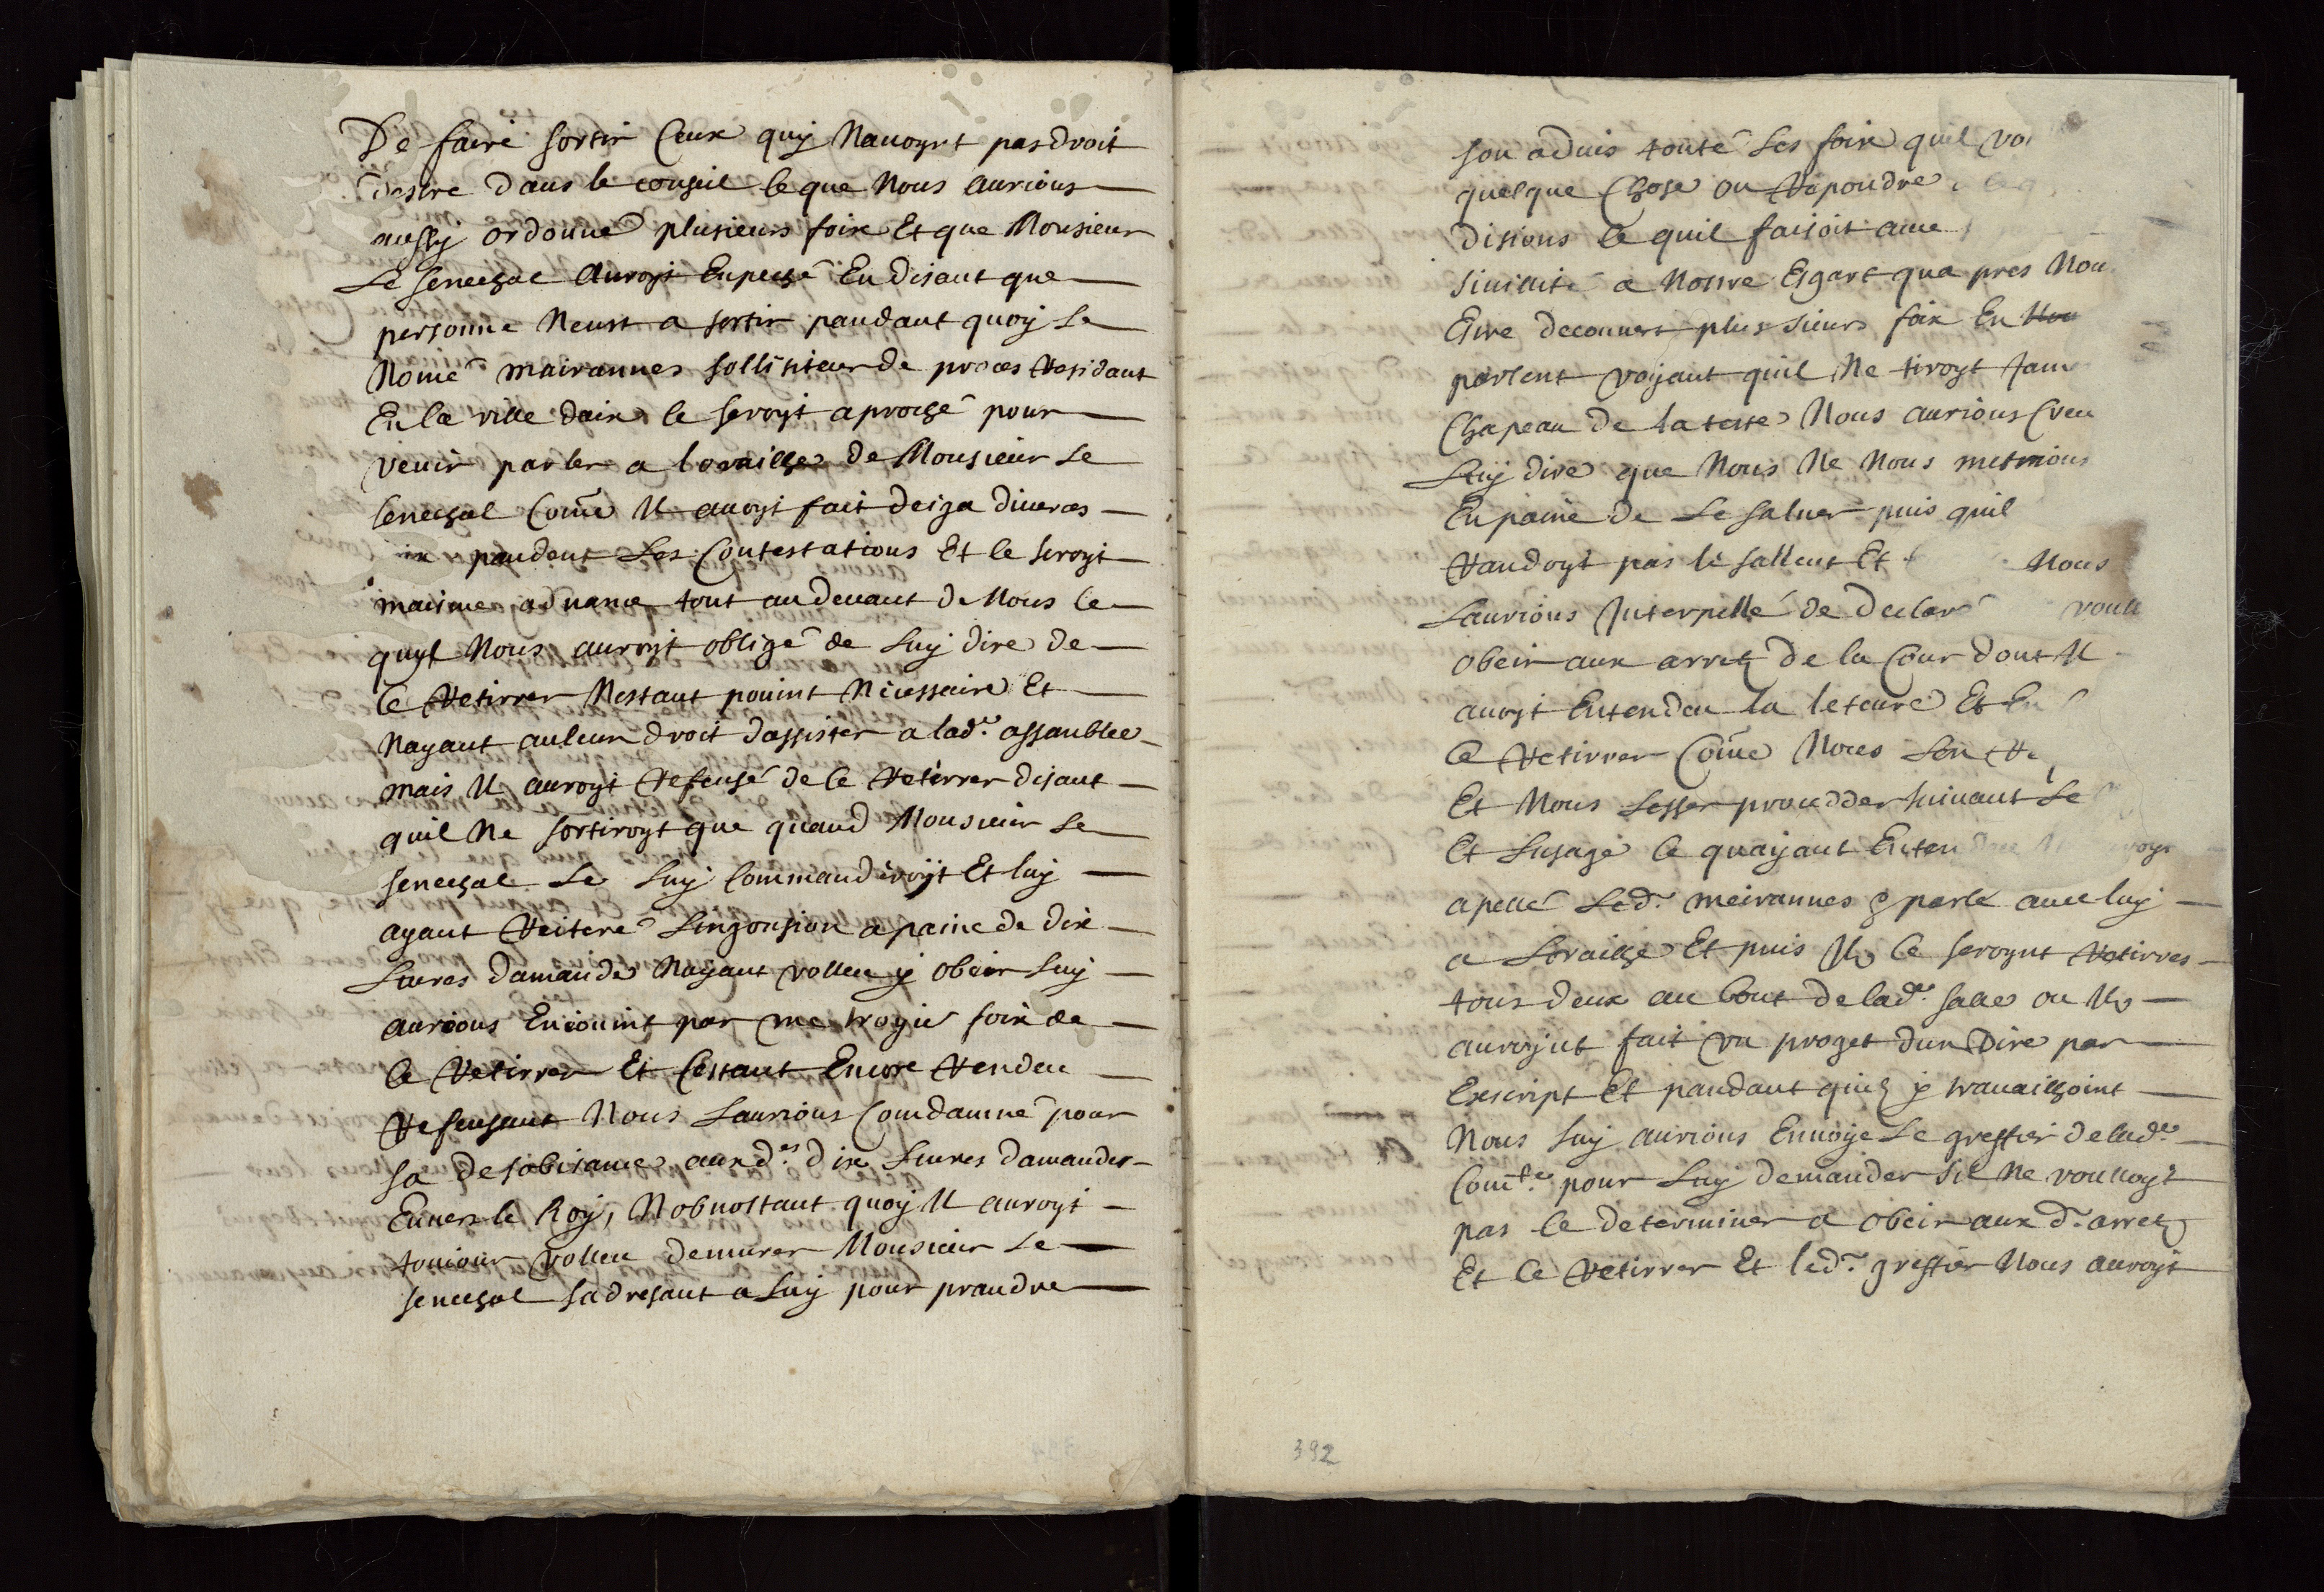 De faire sortir Ceux quy Navoynt pas droit
destre dans le conseil le que Nous aurions
aussy ordonné plusieurs foix Et que Monsieur
Le senechal Auroyt Enpeché En disant que
personne Neust a sortir pandant quoy Le
Nomé mairannes sollisiteur de proces Residant
En la ville daix se seroyt aproché pour
venir parler a loreaillhe de Monsieur Le
senechal Come Il auoyt fait deiga diueres
pandent Les Contestations Et se seroyt
maisme aduance tout au deuant de Nous ce
quyl Nous auroyt obligé de Luy dire de
se Retirrer Nestant pouint Nicessaire Et
Nayant auleun droit dassister a lad.e assanblee
mais Il auroyt Refeusé de se Retirrer disant
quil Ne sortiroyt que quand Monsieur Le
senechal Le Luy Commanderoyt Et luy
ayant Reiteré Lingonsion a paine de dix
Liures damande Nayant vollеu y obeir Luy
aurions Enioinit par une troyie foix de
se Retirrer Et Cestant Encore Rendeu
Refeusant Nous Laurions Condamné pour
sa desobisance aux d.es dix Liures damandes
Enuers le Roy, Nobnostant quoy Il auroyt
touiour volleu demurer Monsieur Le
senechal sadresant a Luy pour prandre
son aduis toute Les foix quil
quelque Chose ou Repondre
disions Ce quil faisoit auec
siuilite a Nostre Esgart qua pres
Eire decouuert plus sieurs foix En
parlent voyant quil Ne tiroyt
Chapeau de la teste Nous aurions Creu
Luy dire que Nous Ne Nous metrions
En paine de Le saluer puis quil
Randoyt pas le salleut Et Nous
Laurions Interpellé de declaré
obeir aux arretz de la Cour dont Il
auoyt Entendeu la leteure Et
se Retirrer Come Nous Len
Et Nous Lesser proucdder suiuant Le
Et Lusage Ce quayant
apellé Led. meirannes & parlé auec luy
a Loraillhe Et puis Ils se seroynt Retirres
tous deux au bout de lad.e salle ou Ils
auroynt fait vn proget dun Dire par
Exscript Et pandant quils y trauaillhoint
Nous Luy aurions Enuoye Le greffier de lad.e
Com.te pour Luy demander sil Ne voulloyt
pas se determiner a obeir aux d. arretz
Et se Retirrer Et led. greffier Nous auroyt
392